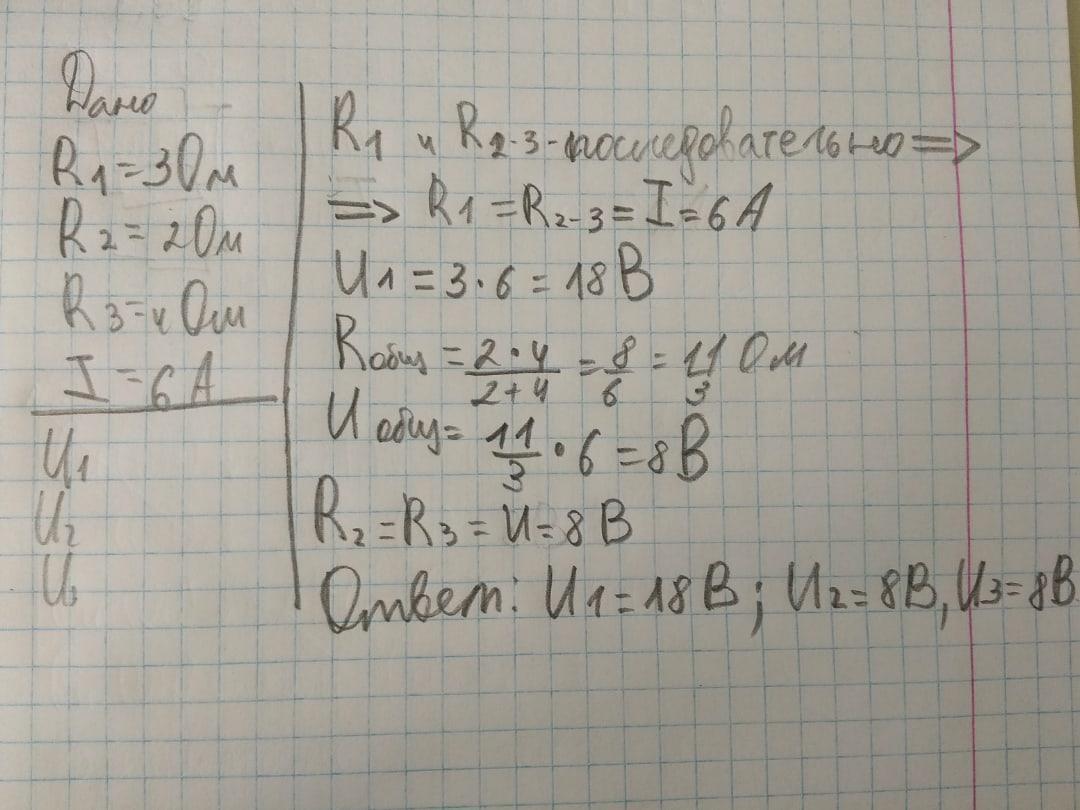 Дано
R1=3Ом
R2=2Ом
R3=4Ом
I=6А
U1
U2
U3
R1 и R2-3-последовательно =>
=> R1=R2-3=I=6А
U1=3·6=18В
Rобщ=2·4/2+4=8/6=11/3 Ом
Uобщ=11/3·6=8В
R2=R3=U=8В
Ответ: U1=18В; U2=8В, U3=8В